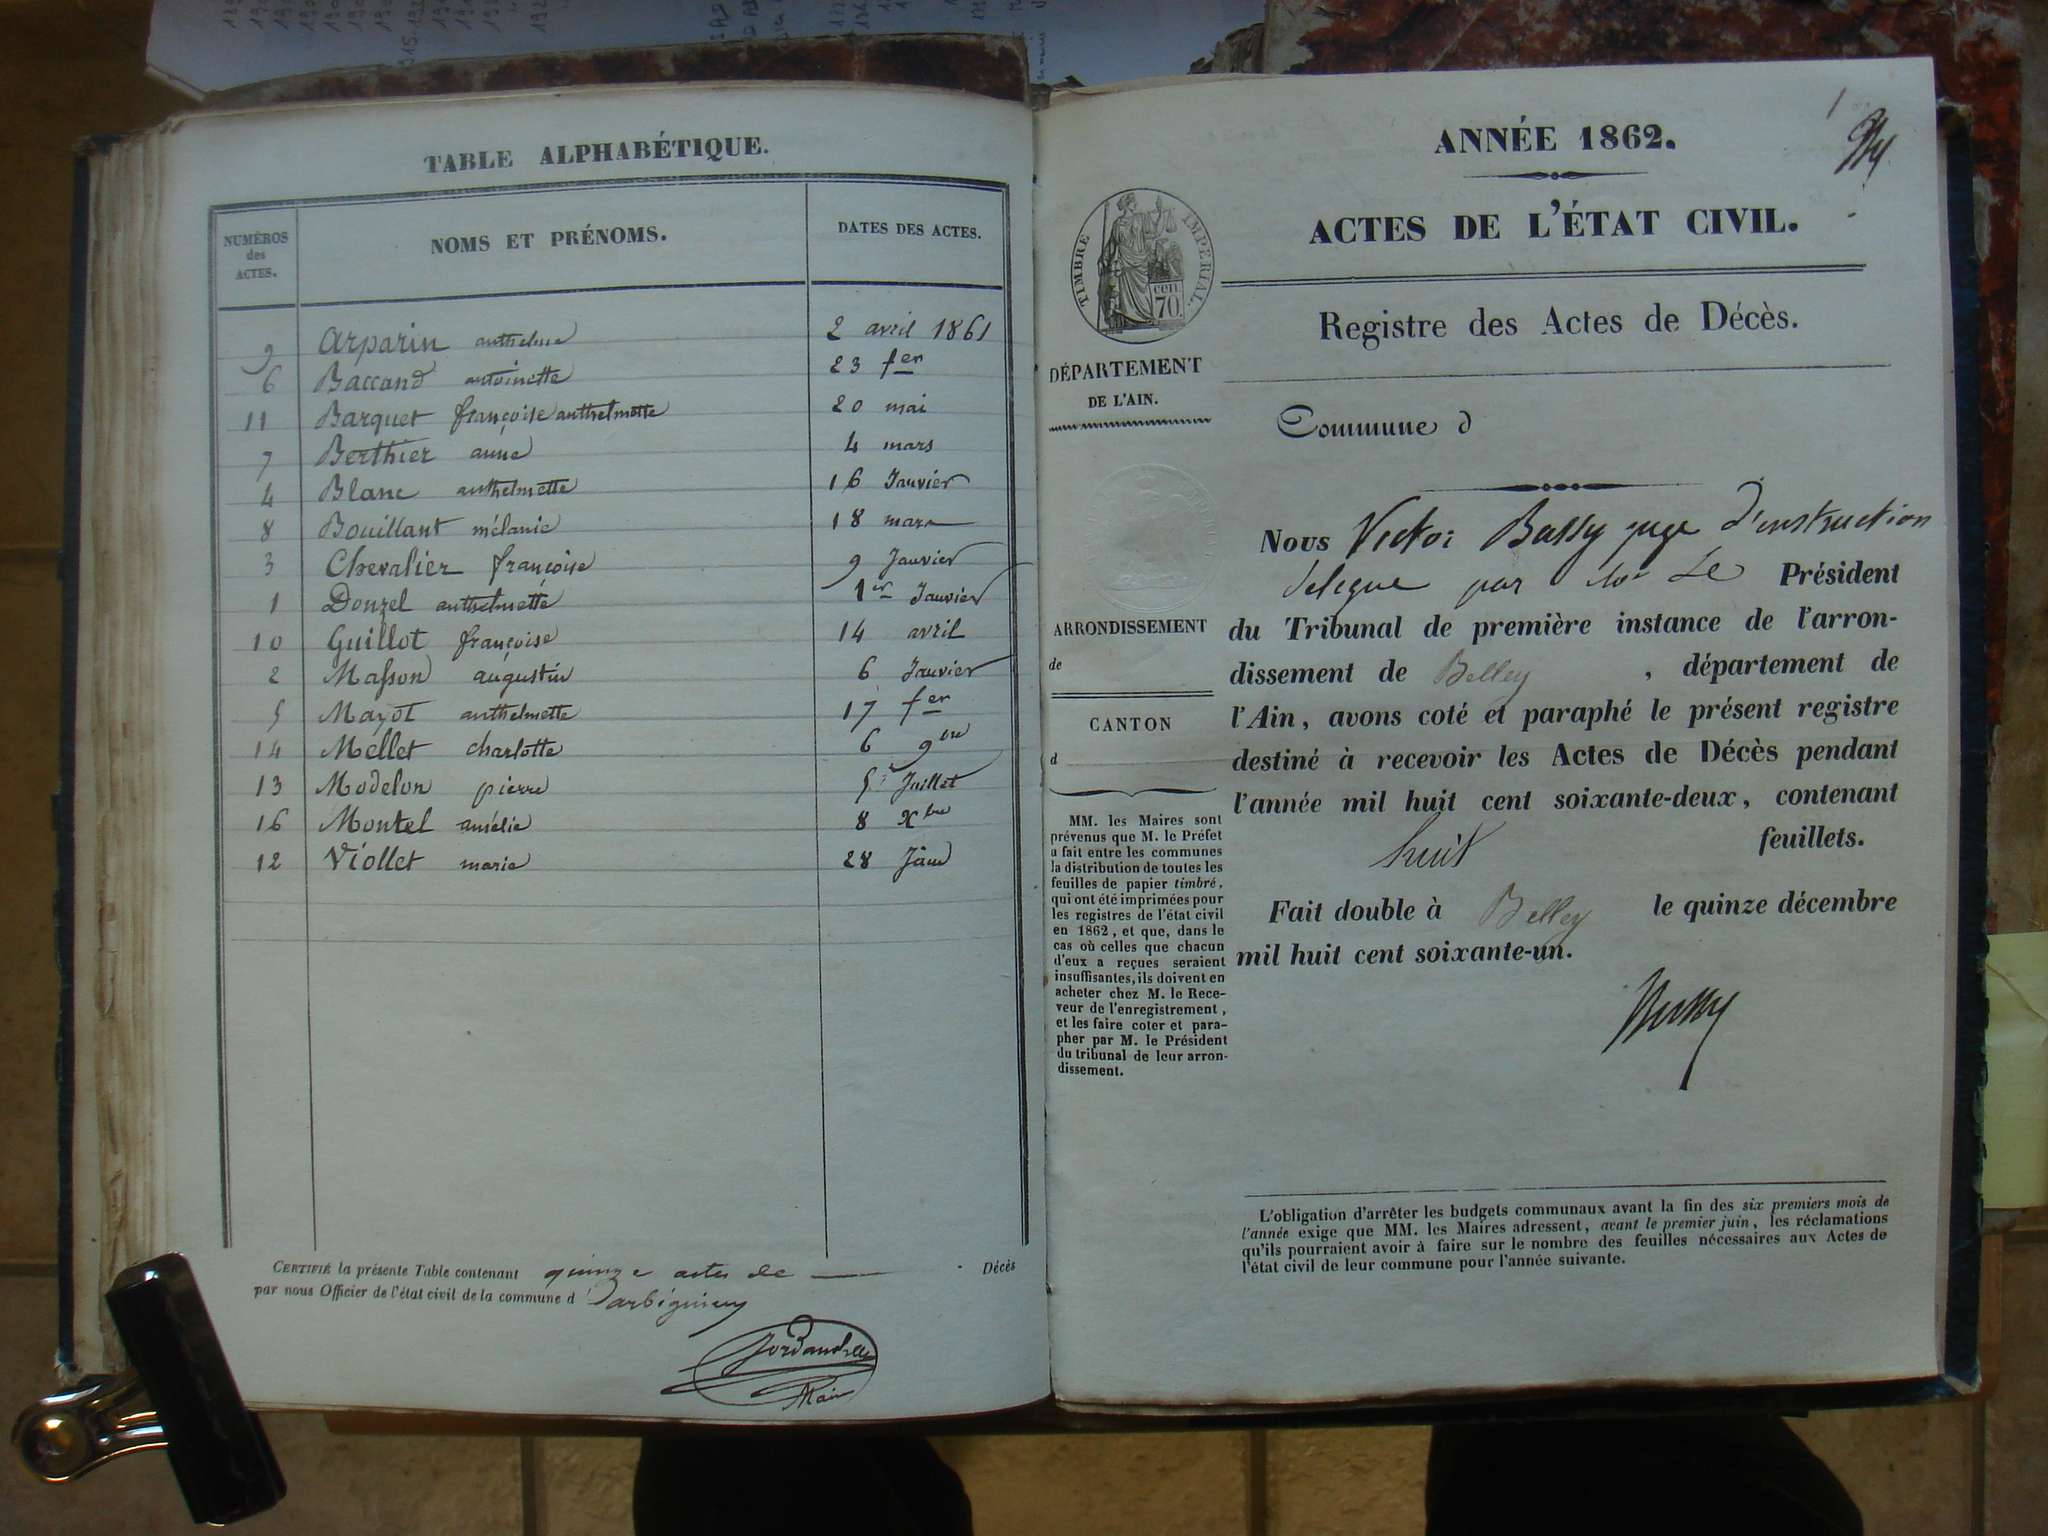 TABLE ALPHABÉTIQUE.
NUMÉROS des ACTES. NOMS ET PRÉNOMS. DATES DES ACTES.
9 Arparin anthelme 2 avril 1861
6 Baccand antoinette 23 fer
11 Barquet françoise anthelmette 20 mai
7 Berthier anne 4 mars
4 Blanc anthelmette 16 Janvier
8 Bouillant mélanie 18 mars
3 Chevalier françoise 9 Janvier
1 Donzel anthelmette 1er Janvier
10 Guillot françoise 14 avril
2 Masson augustin 6 Janvier
5 Mayot anthelmette 17 fer
14 Mellet charlotte 6 9bre
13 Modelon pierre 5 Juillet
16 Montel amélie 8 Xbre
12 Viollet marie 28
CERTIFIÉ la présente Table contenant quinze actes de Décès
par nous Officier de l'état civil de la commune d
Maire
1
ANNÉE 1862.
ACTES DE L'ÉTAT CIVIL.
TIMBRE IMPÉRIAL.
cen
70.
Registre des Actes de Décès.
DÉPARTEMENT
DE L'AIN.
Commune d
Nous Victor Bussy juge d'instruction
délégué par Mr Le Président
du Tribunal de première instance de l'arron-
dissement de Belley , département de
l'Ain, avons coté et paraphé le présent registre
destiné à recevoir les Actes de Décès pendant
l'année mil huit cent soixante-deux, contenant
huit feuillets.
Fait double à Belley le quinze décembre
mil huit cent soixante-un.
Bussy
ARRONDISSEMENT
de
CANTON
d
MM. les Maires sont
prévenus que M. le Préfet
a fait entre les communes
la distribution de toutes les
feuilles de papier timbré,
qui ont été imprimées pour
les registres de l'état civil
en 1862, et que, dans le
cas où celles que chacun
d'eux a reçues seraient
insuffisantes, ils doivent en
acheter chez M. le Rece-
veur de l'enregistrement,
et les faire coter et para-
pher par M. le Président
du tribunal de leur arron-
dissement.
L'obligation d'arrêter les budgets communaux avant la fin des six premiers mois de
l'année exige que MM. les Maires adressent, avant le premier juin, les réclamations
qu'ils pourraient avoir à faire sur le nombre des feuilles nécessaires aux Actes de
l'état civil de leur commune pour l'année suivante.